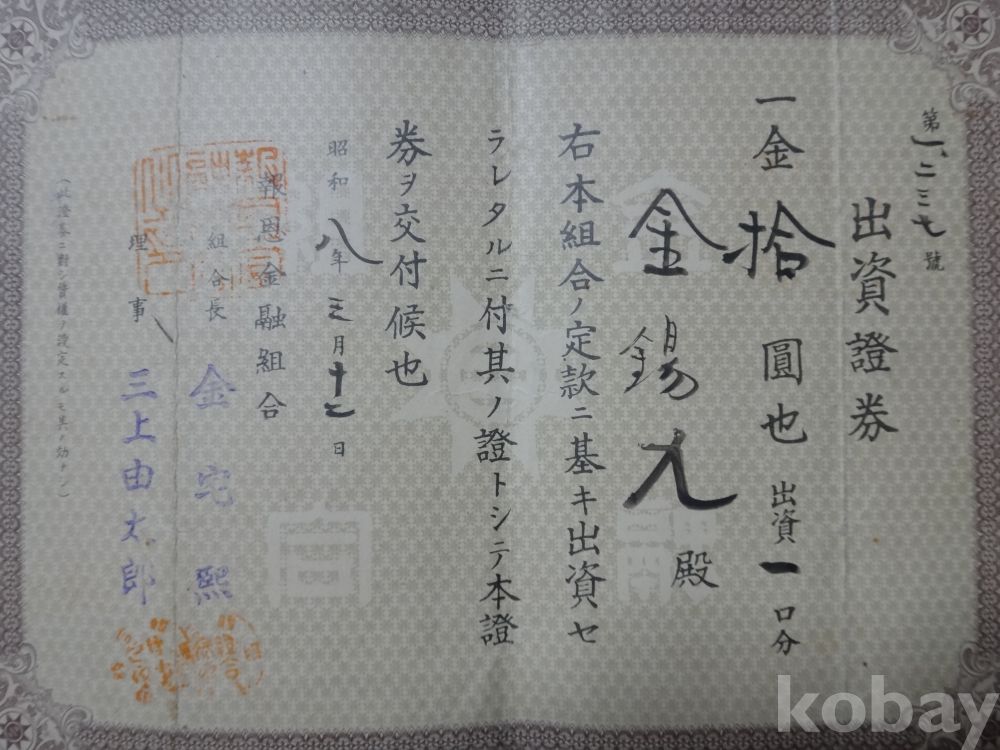 第一、二三七號
出資證券
一金拾圓也 出資一口分
金錫九殿
右本組合ノ定款ニ基キ出資セ
ラレタルニ付其ノ證トシテ本證
券ヲ交付候也
昭和八年三月十二日
報恩金融組合
組合長 金宅熙
理事 三上由太郎
(此證券ニ對シ質權ノ設定スルモ其ノ効ナシ)
金融組合
kobay